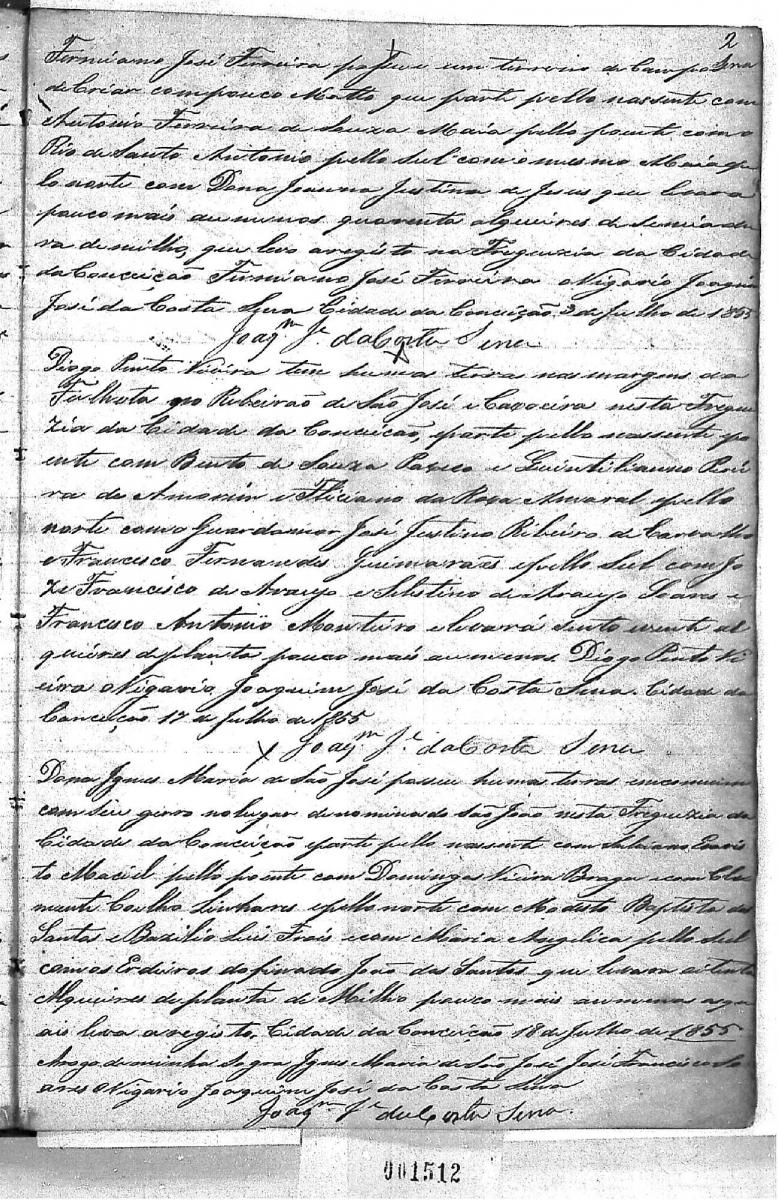 2
Sena
Firmiano José Ferreira possue um terreno de Campo
de Criar com pouco Matto que parte pello nassente com
Antonio Ferreira de Souza Maia pello poente com o
Rio de Santo Antonio pello sul com o mesmo Maia pe
lo norte com Dona Joanna Justina de Jesus que levara
pouco mais au menos quarenta alqueires de semiadu
ra de milho, que levo aregisto na Freguezia da Cidade
da Conceição Firmiano José Ferreira O Vigario Joaquim
José da Costa Sena Cidade da Conceição 2 de Julho de 1855
Joaqm Je da Costa Sena
Diogo Pinto Vieira tem humas terras nas margens da
no Ribeirão de São José e Caxoeira nesta Fregue
zia da Cidade da Conceição, eparte pello nassente po
ente com Bento de Souza e Quintilianno
ra de Amorim e Filiciano da Roza Amaral, epello
norte com o Guardamor José Justino Ribeiro de Carvalho
e Francisco Fernandes Guimaraes epello Sul com Jo
ze Francisco de Araujo e Selistino de Araujo Soares e
Francisco Antonio Monteiro elevará sento evente al
queires de planta pouco mais au menos. Diogo Pinto Vi
eira O Vigario Joaquim José da Costa Sena. Cidade da
Conceição 12 de Julho de 1855
Joaqm Je da Costa Sena
Dona Ignes Maria de São José possue humas terras emcomum
com Seu genro no lugar denominado São João nesta Freguezia da
Cidade da Conceição eparte pello nassente com
to Maciel pello poente com Domingos Vieira Braga e com Cle
mente Coelho Linhares epello norte com Modesto Baptista dos
Santos e Bazilio Luis Frois e com Maria Angelica pello Sul
com os Erdeiros do finado João dos Santos que levara oitenta
Alqueires de planta de Milho pouco mais au menos aqu
ais leva aregisto, Cidade da Conceição 18 de Julho de 1855
Arogo de minha Sogra Ignes Maria de São José José Francisco So
ares O Vigario Joaquim José da Costa Sena
Joaqm Je da Costa Sena.
001512